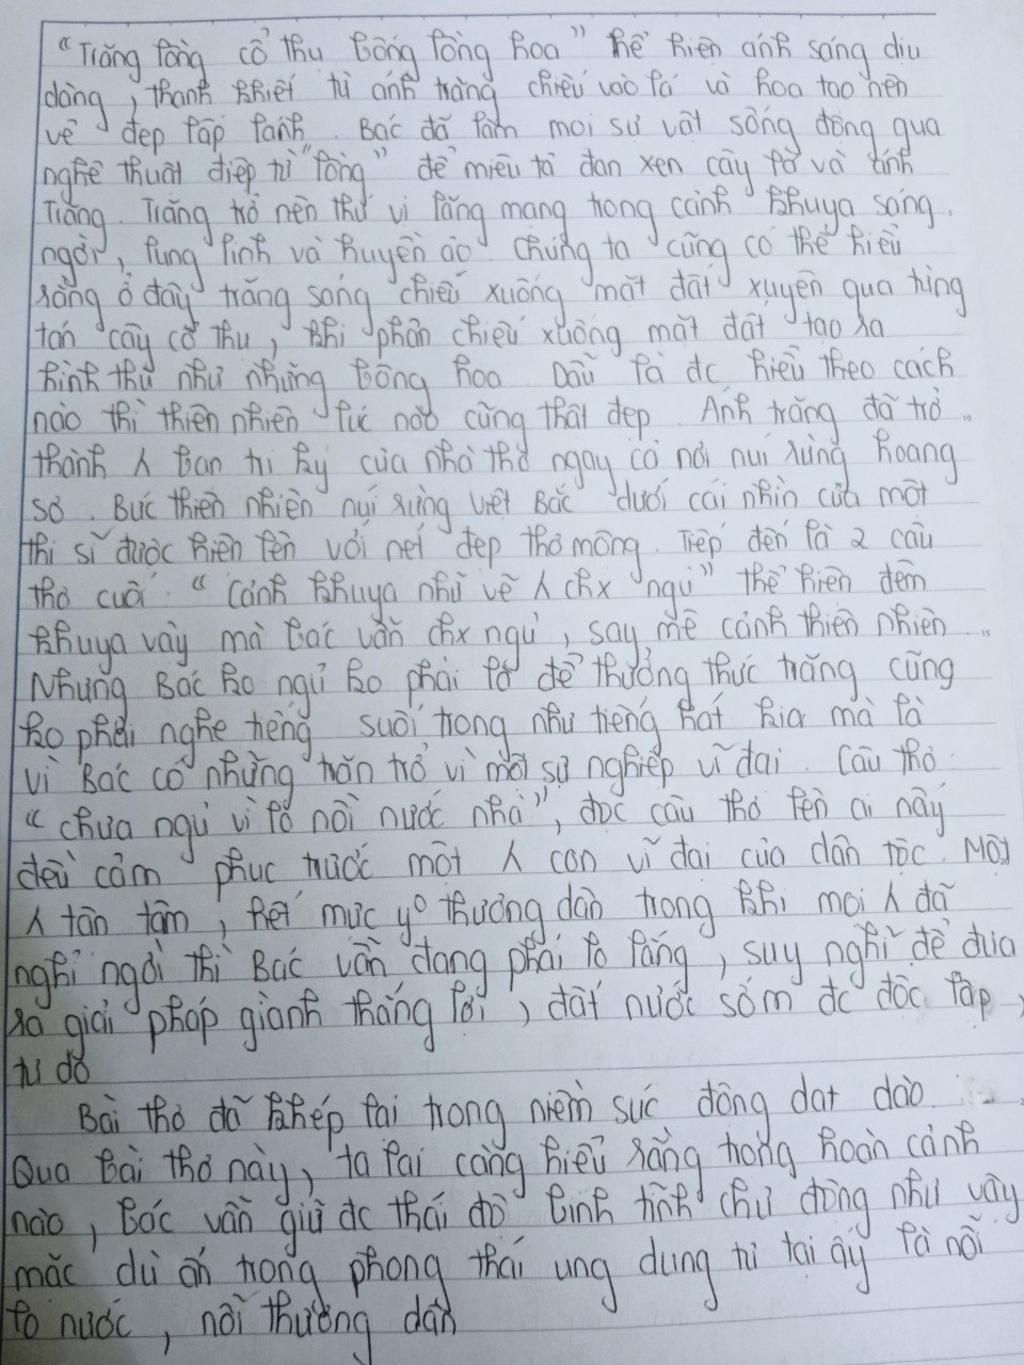 "Trăng lồng cổ thụ bóng lồng hoa" thể hiện ánh sáng dịu
dàng, thanh khiết từ ánh trăng chiếu vào lá và hoa tạo nên
vẻ đẹp lấp lánh. Bác đã làm mọi sự vật sống động qua
nghệ thuật điệp từ "lồng" để miêu tả đan xen cây lá và ánh
Trăng. Trăng trở nên thú vị lãng mạng trong cảnh khuya sáng
ngời, lung linh và huyền ảo. Chúng ta cũng có thể hiểu
rằng ở đây trăng sáng chiếu xuống mặt đất xuyên qua từng
tán cây cổ thụ, khi phản chiếu xuống mặt đất tạo ra
hình thù như những bông hoa. Dẫu là đc hiểu theo cách
nào thì thiên nhiên lúc nào cũng thật đẹp. Ánh trăng đã trở
thành λ bạn tri kỷ của nhà thơ ngay cả nơi núi rừng hoang
sơ. Bức thiên nhiên núi rừng Việt Bắc dưới cái nhìn của một
thi sĩ được hiện lên với nét đẹp thơ mộng. Tiếp đến là 2 câu
thơ cuối: "Cảnh khuya như vẽ λ chx ngủ" thể hiện đêm
khuya vậy mà bác vẫn chx ngủ, say mê cảnh thiên nhiên
Nhưng Bác ko ngủ ko phải là để thưởng thức trăng cũng
ko phải nghe tiếng suối trong như tiếng hát kia mà là
vì Bác có những trăn trở vì một sự nghiệp vĩ đại. Câu thơ
"chưa ngủ vì lo nỗi nước nhà", đọc câu thơ lên ai nấy
đều cảm phục trước một λ con vĩ đại của dân tộc. Một
λ tận tâm, hết mực yº thương dân trong khi mọi λ đã
nghỉ ngơi thì Bác vẫn đang phải lo lắng, suy nghĩ để đưa
ra giải pháp giành thắng lợi, đất nước sớm đc độc lập,
tự do
Bài thơ đã khép lại trong niềm xúc động dạt dào.
Qua bài thơ này, ta lại càng hiểu rằng trong hoàn cảnh
nào, Bác vẫn giữ đc thái độ bình tĩnh chủ động như vậy
mặc dù ẩn trong phong thái ung dung tự tại ấy là nỗi
lo nước, nỗi thương dân